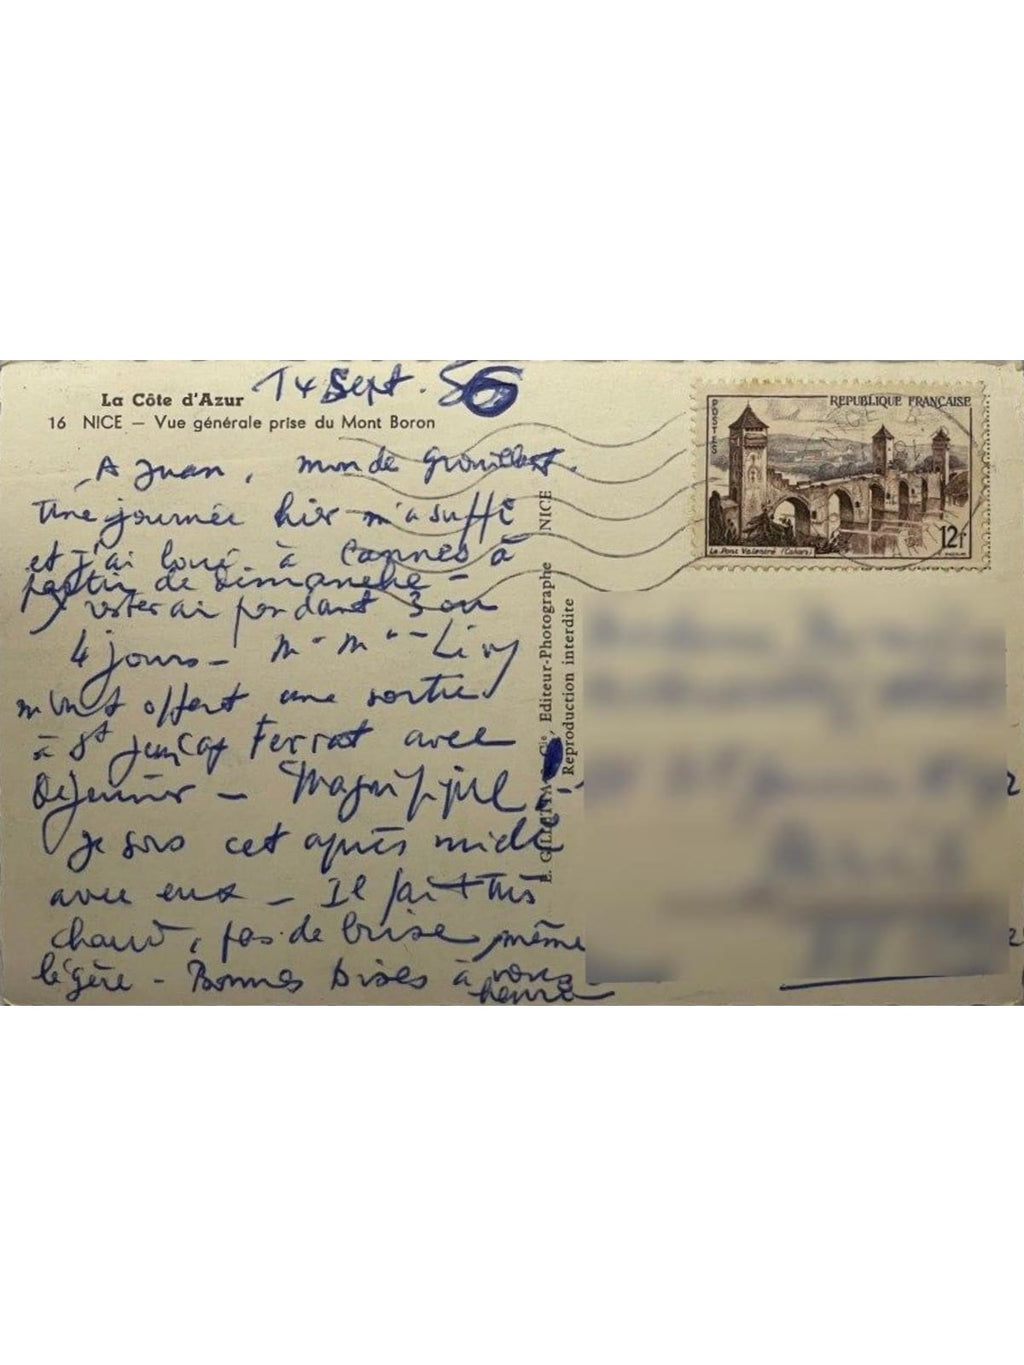 La Côte d'Azur
14 Sept. 56
16 NICE — Vue générale prise du Mont Boron
A Juan, monde grouillant.
Une journée hier m'a suffi
et j'ai loué à Cannes à
partir de Dimanche –
J'y resterai pendant 3 ou
4 jours – Mr Mme Livy
m'ont offert une sortie
à St Jean Cap Ferrat avec
Déjeuner – Magnifique –
Je sors cet après midi
avec eux – Il fait très
chaud, pas de brise, même
légère – Bonnes bises à vous
E. GILLETTA & Cie, Editeur-Photographe NICE
Reproduction interdite
POSTES
REPUBLIQUE FRANÇAISE
12f
Le Pont Valentré (Cahors)